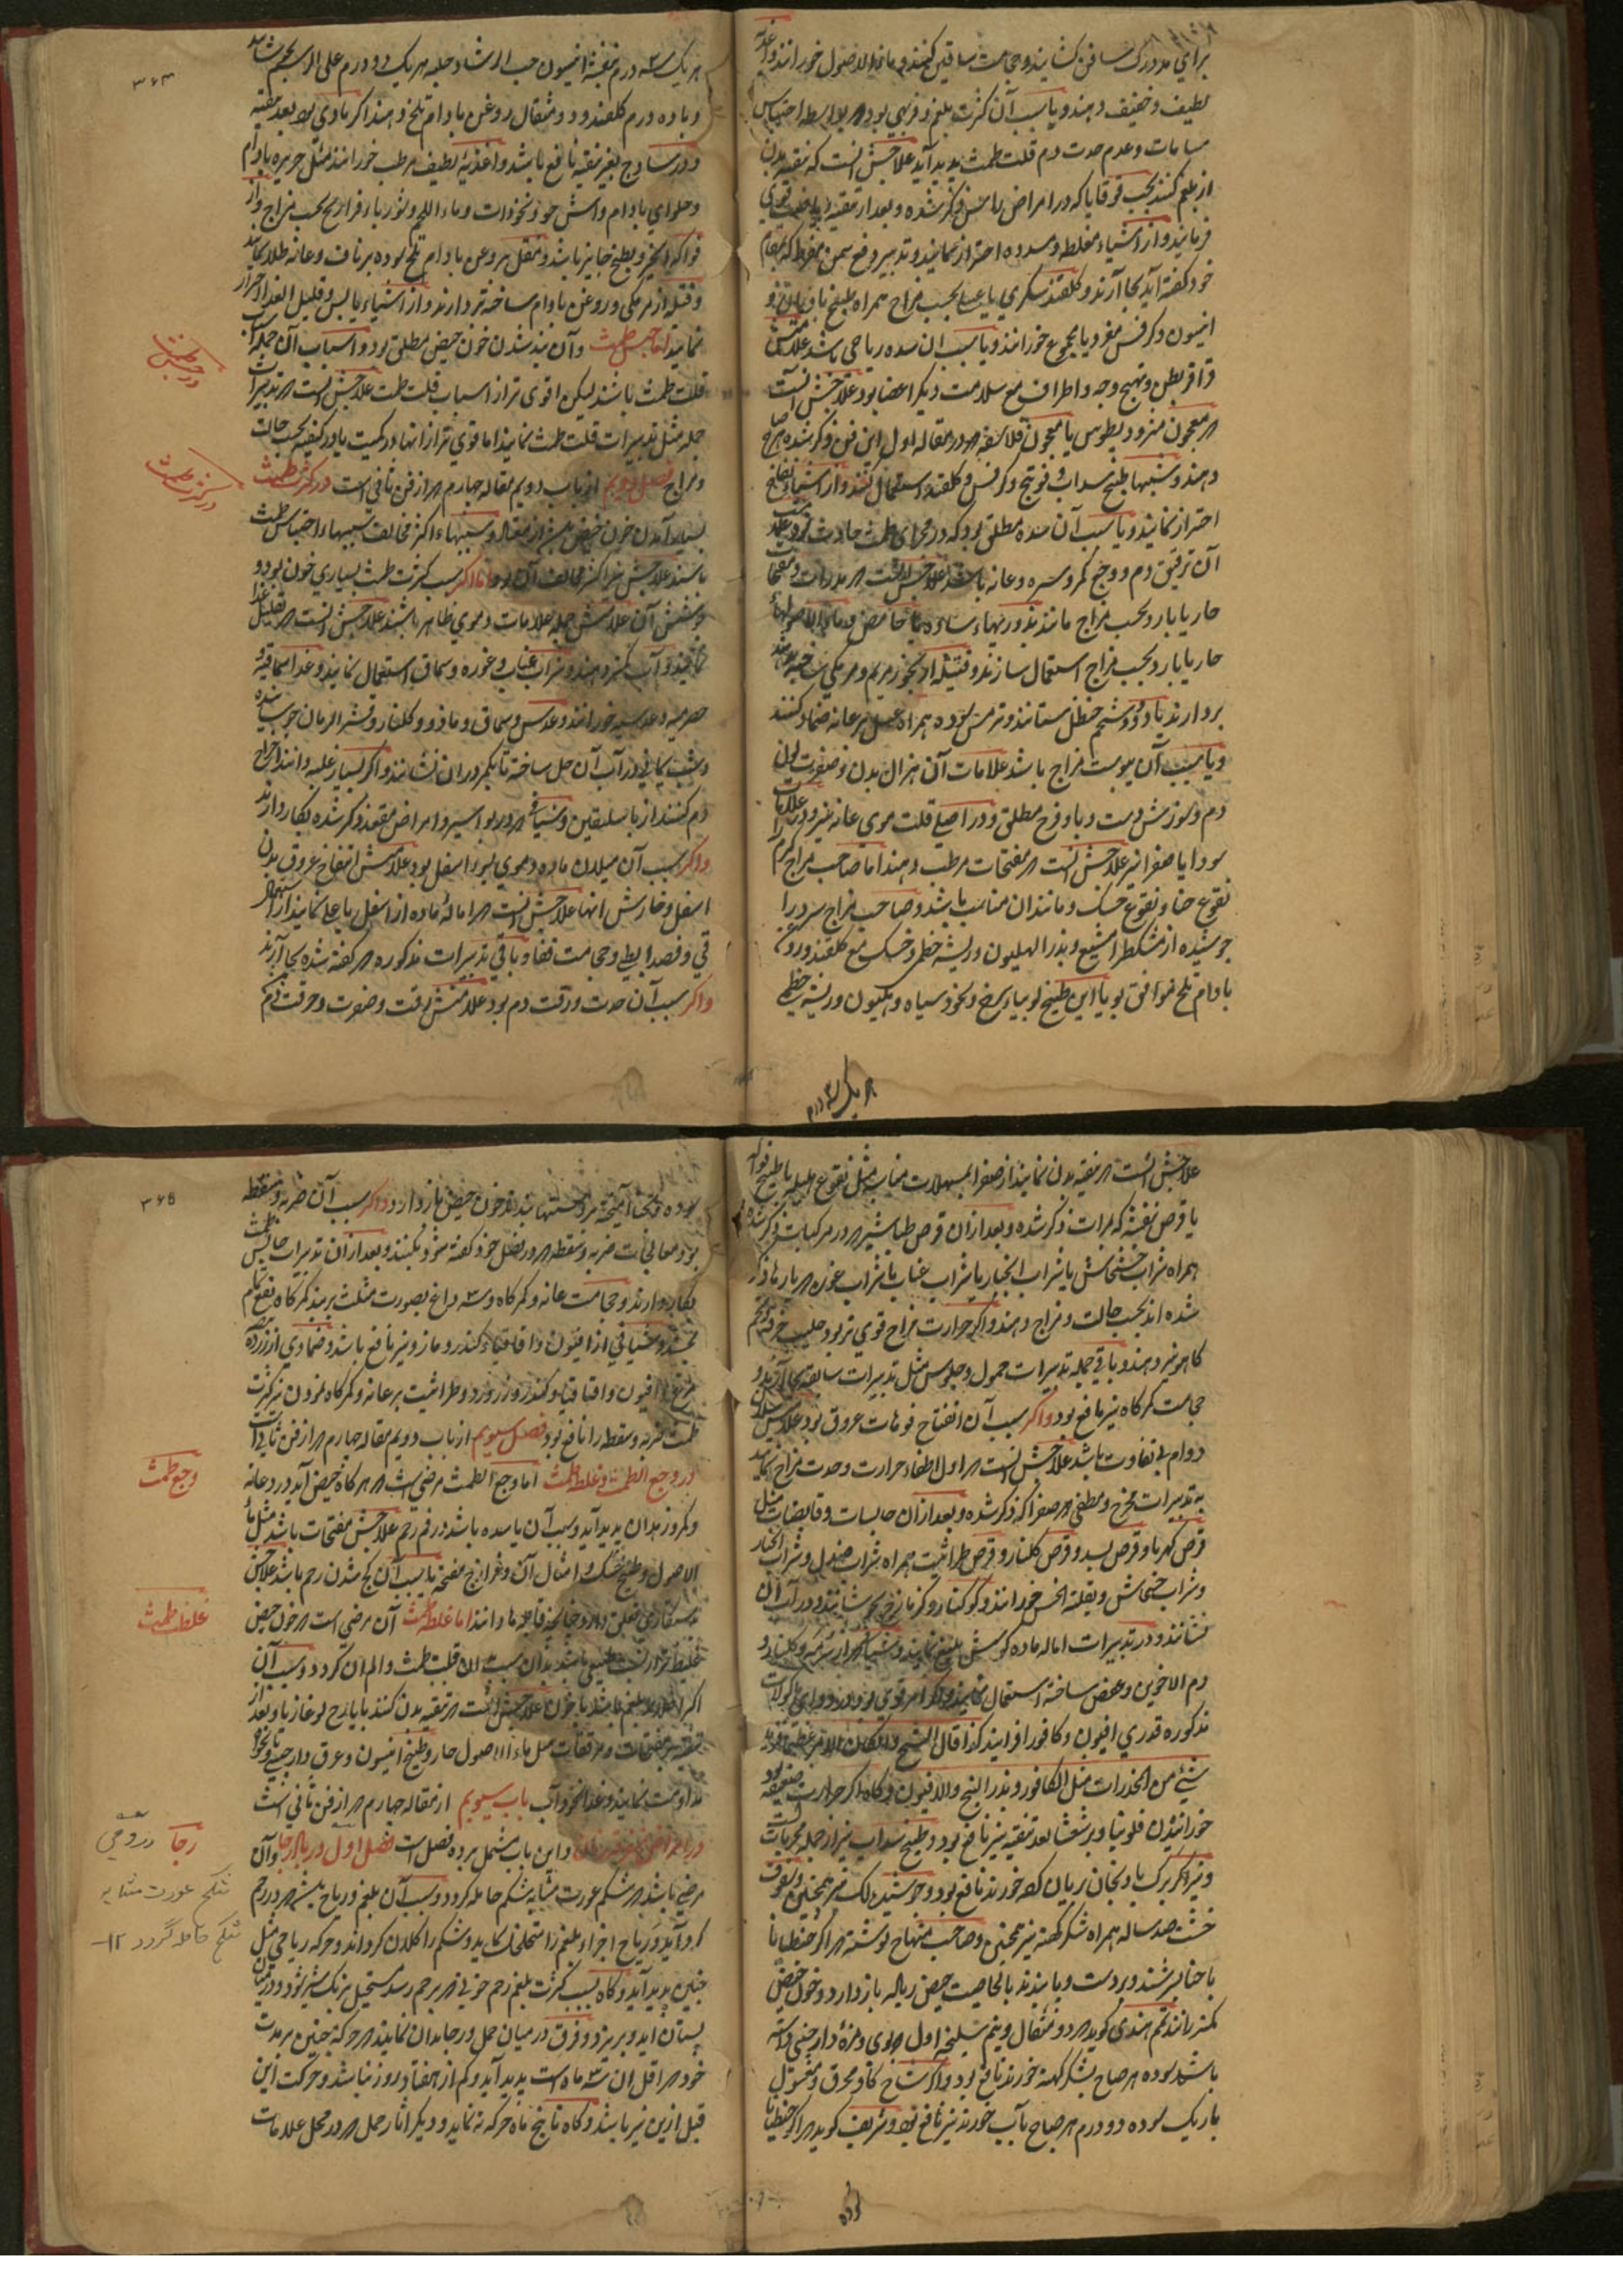 برای مدد رک سافن کشایند و حجامت ساقین کنند و ماء الاصول خورانند و اغذیه
لطیف و خفیف دهند و یا سبب آن کثرت بلغم و فربهی بود که بواسطه احتباس
مسامات و عدم حدت دم قلت طمث پدید آید علاجش آنست که تنقیه بدن
از بلغم کنند بحب قوقایا که در امراض راس ذکر شده و بعد از تنقیه ریاضت قوی
فرمایند و از اشیاء مغلظه و مسدده احتراز نمایند و تدبیر رفع سمن مفرط که بمقام
خود گفته آید بجا آرند و گلقند سکری یا عسلی بحسب مزاج همراه طبیخ بادیان و
انیسون و کرفس مفرد یا مجموع خورانند و یا سبب آن سده ریاحی باشد علامتش
قراقر بطن و تهیج وجه و اطراف مع سلامت دیگر اعضا بود علاجش آنست
که معجون مثرودیطوس یا معجون فلاسفه که در مقاله اول این فن ذکر شده صباح
دهند و شبها طبیخ سداب و فوتنج و کرفس و گلقند استعمال کنند و از اشیاء نفاخ
احتراز نمایند و یا سبب آن سده مطلق بود که در مجرای طمث حادث گردد علامت
آن ترقیق دم و وجع کمر و سره و عانه باشد علاجش آنست که مدرات و مفتحات
حار یا بارد بحسب مزاج مانند بزوریهاء ساده یا حامض و ماء الاصولهاء
حار یا بارد بحسب مزاج استعمال سازند و فتیله از بخور مریم و مرمکی ساخته
بردارند یا دود شحم حنظل ستانند و ترمس سوده همراه عسل بر عانه ضماد کنند
و یا سبب آن یبوست مزاج باشد علامات آن هزال بدن و صفرت لون
دم و سوزش دست و پا و فرج مطلق و در اصلی قلت موی عانه نیز و در علامات
سودا یا صفرا نیز علاجش آنست که مفتحات مرطب دهند اما صاحب مزاج گرم را
نقوع حنا و نقوع خسک و مانند آن مناسب باشد و صاحب مزاج سرد را
جوشیده از مشکطرامشیع و بذر الهلیون و ریشه خطمی و خسک مع گلقند و روغن
بادام تلخ موافق بود یا این طبیخ لوبیاء سرخ و نخود سیاه و هلیون و ریشه خطمی
هر یک ۳ درم
۳۶۴
هر یک سه درم بنفشه انیسون حب الرشاد حلبه هر یک دو درم علی الرسم بجوشانند
و با ده درم گلقند و دو مثقال روغن بادام تلخ دهند اگر مادی بود بعد تنقیه
و در ساذج بغیر تنقیه نافع باشد و اغذیه لطیف مرطب خورانند مثل حریره بادام
و حلوای بادام و آش جو و نخودآب و ماء اللحم و شوربا و فراریج بحسب مزاج و از
فواکه انجیر و بطیخ جایز باشد و مقل بروغن بادام تلخ سوده بر ناف و عانه طلا نمایند
و فتیله از مرمکی و روغن بادام ساخته بردارند و از اشیاء یابس و قلیل الغذا احتراز
نمایند اما حبس طمث و آن بند شدن خون حیض مطلق بود و اسباب آن جمله اسباب
قلت طمث باشد لیکن اقوی تر از اسباب قلت طمث علاجش آنست که تدبیرات
جمله مثل تدبیرات قلت طمث نمایند اما قوی تر از آنها در کمیت یا در کیفیت بحسب حالت
و مزاج فصل دویم از باب دویم مقاله چهارم که از فن ثانی است در کثرت طمث
در حبس طمث
در کثرت طمث
بسیار آمدن خون حیض بیش از مقدار و سببهاء اکثر مخالف سببهاء احتباس طمث
باشند علاجش نیز اکثر مخالف آن بود اما اگر سبب کثرت طمث بسیاری خون بود و
جوشش آن علامتش جمله علامات دموی ظاهر باشند علاجش آنست که تقلیل غذا
نمایند و آب کزبره دهند و شراب عناب و غوره و سماق استعمال نمایند و غذا سماقیه و
حصرمیه و عدسیه خورانند و عدس و سماق و مازو و گلنار و قشر الرمان جوشانیده
و شب یمانی در آب آن حل ساخته تا بکمر در آن نشانند و اگر بسیار غلبه دانند اخراج
دم کنند از باسلیقین و شیافی که در بواسیر و امراض مقعد ذکر شده بکار دارند
و اگر سبب آن میلان ماده دموی بسوء اسفل بود علامتش انتفاخ عروق بدن
اسفل و خارش آنها علاجش آنست که اماله ماده از اسفل باعلی نمایند از اسهال
قی و فصد ابطی و حجامت قفا و باقی تدبیرات مذکوره که گفته شده بجا آرند
و اگر سبب آن حدت و رقت دم بود علامتش رقت و صفرت و حرقت دم
علاجش آنست که تنقیه بدن نمایند از صفرا بمسهلات مناسبه مثل نقوع هلیله یا طبیخ فواکه
یا قرص بنفشه که بمرات ذکر شده و بعد از آن قرص طباشیر که در مرکبات ذکر شده
همراه شراب خشخاش یا شراب انجبار یا شراب عناب یا شراب غوره که بارها ذکر
شده اند بحسب حالت و مزاج دهند و اگر حرارت مزاج قوی تر بود حلیب خرفه و تخم
کاهو نیز دهند و باقی جمله تدبیرات حمول و جلوس مثل تدبیرات سابقه بجا آرند و
حجامت کمرگاه نیز نافع بود و اگر سبب آن انفتاح فوهات عروق بود علامتش سیلان
دوام بی تفاوت باشد علاجش آنست که اول اطفاء حرارت و حدت مزاج نمایند
به تدبیرات مخرج و مطفی که صفرا که ذکر شده و بعد از آن حابسات و قابضات مثل
قرص کهربا و قرص بسد و قرص گلنار و قرص طراثیث همراه شراب صندل و شراب انجبار
و شراب خشخاش و بقلة الحس خورانند و کوکنار و گزمازج بجوشانند و در آب آن
نشانند و در تدبیرات اماله ماده کوشش بلیغ نمایند و شیاف که از سرمه و گلنار و
دم الاخوین و عفص ساخته استعمال نمایند و اگر امر قوی بود در دوای ماکولات
مذکوره قدری افیون و کافور افزایند کذا قال الشیخ
شیٔ من المخدرات مثل الکافور و بذر البنج و الافیون و گاه اگر حرارت ضعیفه
خورانیدن فلونیا و برشعثا بعد تنقیه نیز نافع بود و طبیخ سداب نیز از جمله مجربات
و نیز اگر برگ بادنجان بریان کرده خورند نافع بود و جوشیده لک نیز همچنین و سفوف
خشت صد ساله همراه شکر کهنه نیز همچنین و صاحب منهاج نوشته که اگر جنطیانا
با حنا بسرشند و بر دست و پا بندند بالخاصیت حیض را باز دارد و خون حیض
کمتر ماند حکیم هندی گوید که دو مثقال و نیم سلیخه اول که بوی و مزه دارچینی داشته
باشد سوده هر صباح بشکر کهنه خورند نافع بود و اگر شاخ گاو محرق و مغسول
باریک سوده دو درم هر صباح بآب خورند نیز نافع بود و شریف گوید که اگر جنطیانا
۳۶۵
سوده و بحنا آمیخته بر دستها بندند خون حیض باز دارد و اگر سبب آن ضربه و سقطه
بود معالجات ضربه و سقطه که در فصل خود گفته شود بکنند و بعد از آن تدبیرات حابس طمث
بکار دارند و حجامت عانه و کمرگاه و سه داغ بصورت مثلث بر مذکرگاه نفع تمام
بخشد و شیافی از افیون و اقاقیا و کندر و مازو نیز نافع باشد و ضمادی از زرده
مرغ و افیون و اقاقیا و کندر و زرورد و طراثیث بر عانه و کمرگاه نمودن نیز کثرت
طمث ضربه و سقطه را نافع بود فصل سیوم از باب دویم مقاله چهارم که از فن ثانی است
در وجع الطمث و غلظ طمث اما وجع الطمث مرضی است که هر گاه حیض آید درد عانه
و کمر و زهدان پدید آید و سبب آن یا سده باشد در فم رحم علاجش مفتحات باشد مثل ماء
الاصول و طبیخ خسک و امثال آن و فرازج مفتحه یا سبب آن کج شدن رحم باشد علاجش
بدستکاری تعلق دارد چنانچه قابله ها دانند اما غلظ طمث آن مرضی است که خون حیض
وجع طمث
غلظ طمث
غلیظ تر از نسبت طبیعی باشد بدان سبب قلت طمث و الم آن گردد و سبب آن
اکثر اختلاط بلغم باشد با خون علاجش آنست که تنقیه بدن کنند بایارج لوغازیا و بعد از
تنقیه مفتحات و مرققات مثل ماء الاصول حار و طبیخ انیسون و عرق دارچینی و نخودآب
مداومت نمایند و غذا نخودآب باب سیوم از مقاله چهارم که از فن ثانی است
در امراض متفرقه زنان و این باب مشتمل بر ده فصل است فصل اول در بیان رجا و آن
مرضی باشد که شکم عورت مشابه شکم حامله گردد و سبب آن بلغم و ریاح باشد که در رحم
رجا
شکم عورت مشابه
شکم حامله گردد ۱۲
گرد آید و ریاح اجزاء بلغم را متخلخل نماید و شکم را کلان گرداند و حرکه ریاحی مثل
جنین پدید آید و گاه بسبب کثرت بلغم رحم خونی که برحم رسد مستحیل برنگ شیر شود و در میان
پستان آید و بریزد و فرق در میان حمل و رجا بدان نمایند که حرکه جنین بر مدت
خود که اقل آن سه ماه است پدید آید و کم از هفتاد روز نباشد و حرکت این
قبل ازین نیز باشد و گاه تا پنج ماه حرکه نه نماید و دیگر آثار حمل که در محل علامات